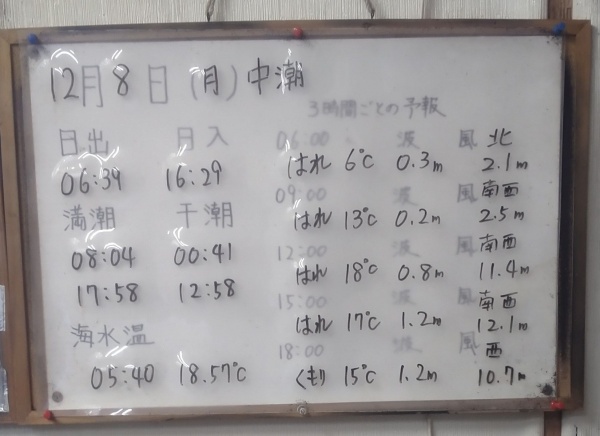 12月8日(月)中潮
日出 日入
06:39 16:29
満潮 干潮
08:04 00:41
17:58 12:58
海水温
05:40 18.57℃
3時間ごとの予報
06:00 波 風 北
はれ 6℃ 0.3m 2.1m
09:00 波 風 南西
はれ 13℃ 0.2m 2.5m
12:00 波 風 南西
はれ 18℃ 0.8m 11.4m
15:00 波 風 南西
はれ 17℃ 1.2m 12.1m
18:00 波 風 西
くもり 15℃ 1.2m 10.7m